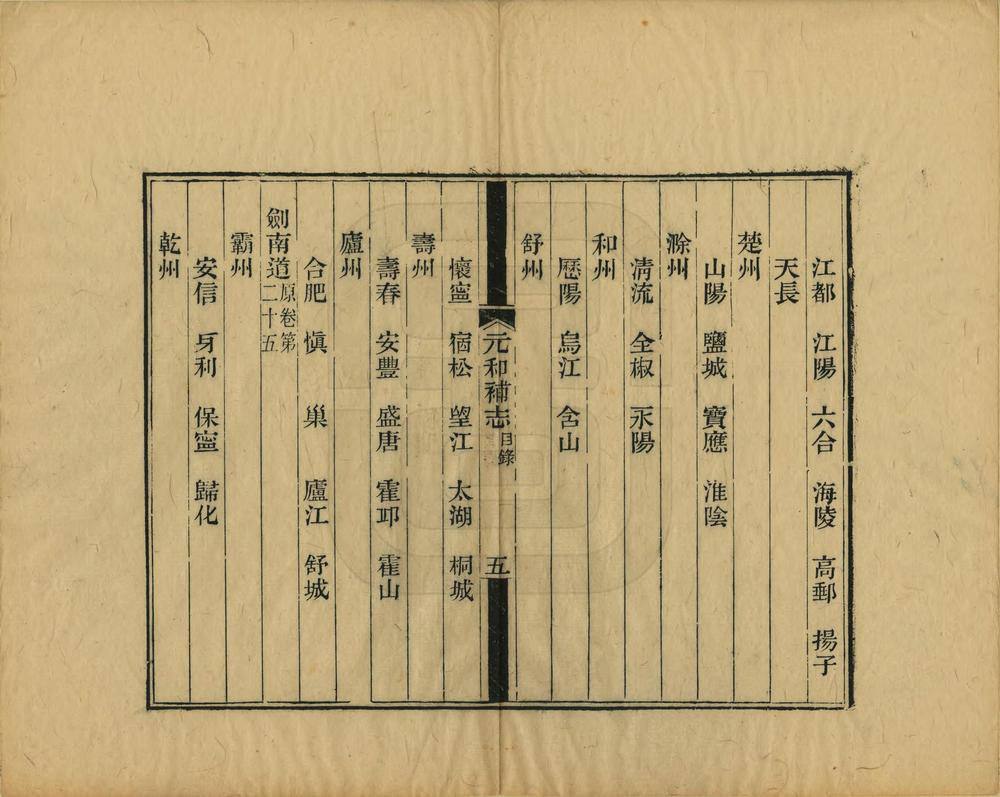 江都　江陽　六合　海陵　高郵　揚子
天長
楚州
山陽　鹽城　寶應　淮陰
滁州
清流　全椒　永陽
和州
歷陽　烏江　含山
舒州
元和補志　目錄　五
懷寧　宿松　望江　太湖　桐城
壽州
壽春　安豐　盛唐　霍邱　霍山
廬州
合肥　愼　巢　廬江　舒城
劍南道　原卷第二十五
霸州
安信　牙利　保寧　歸化
乾州